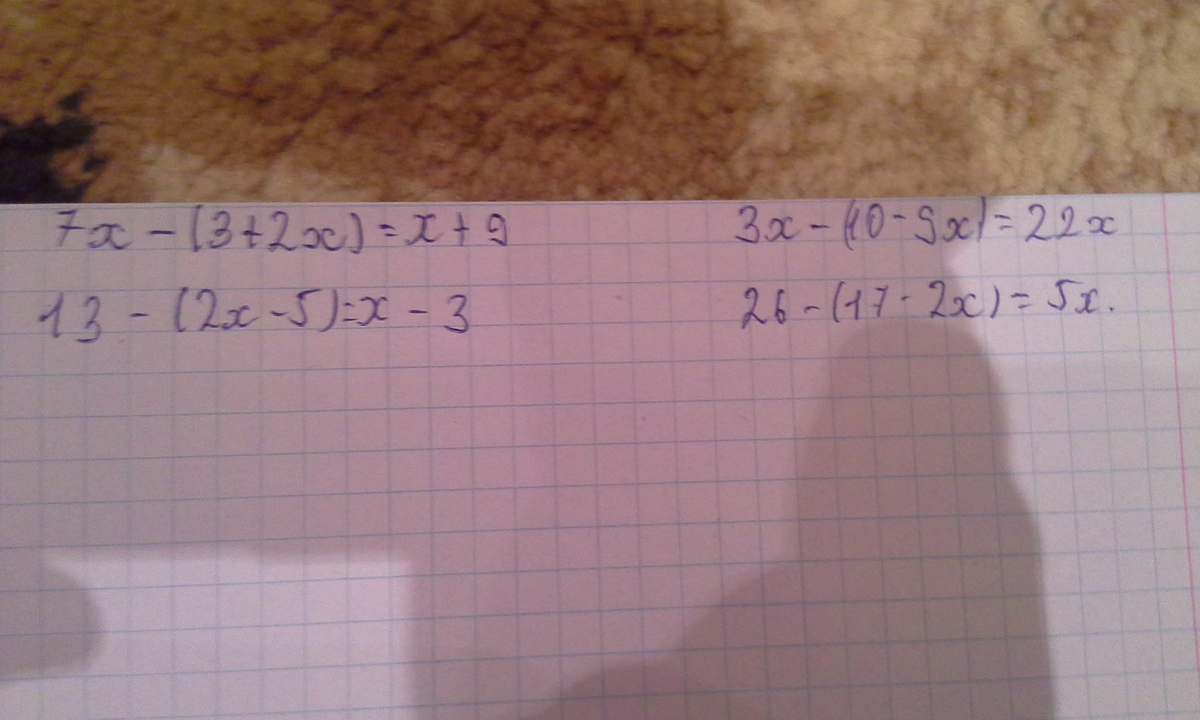 7x - (3+2x) = x + 9
3x - (10 - 9x) = 22x
13 - (2x - 5) = x - 3
26 - (17 - 2x) = 5x.